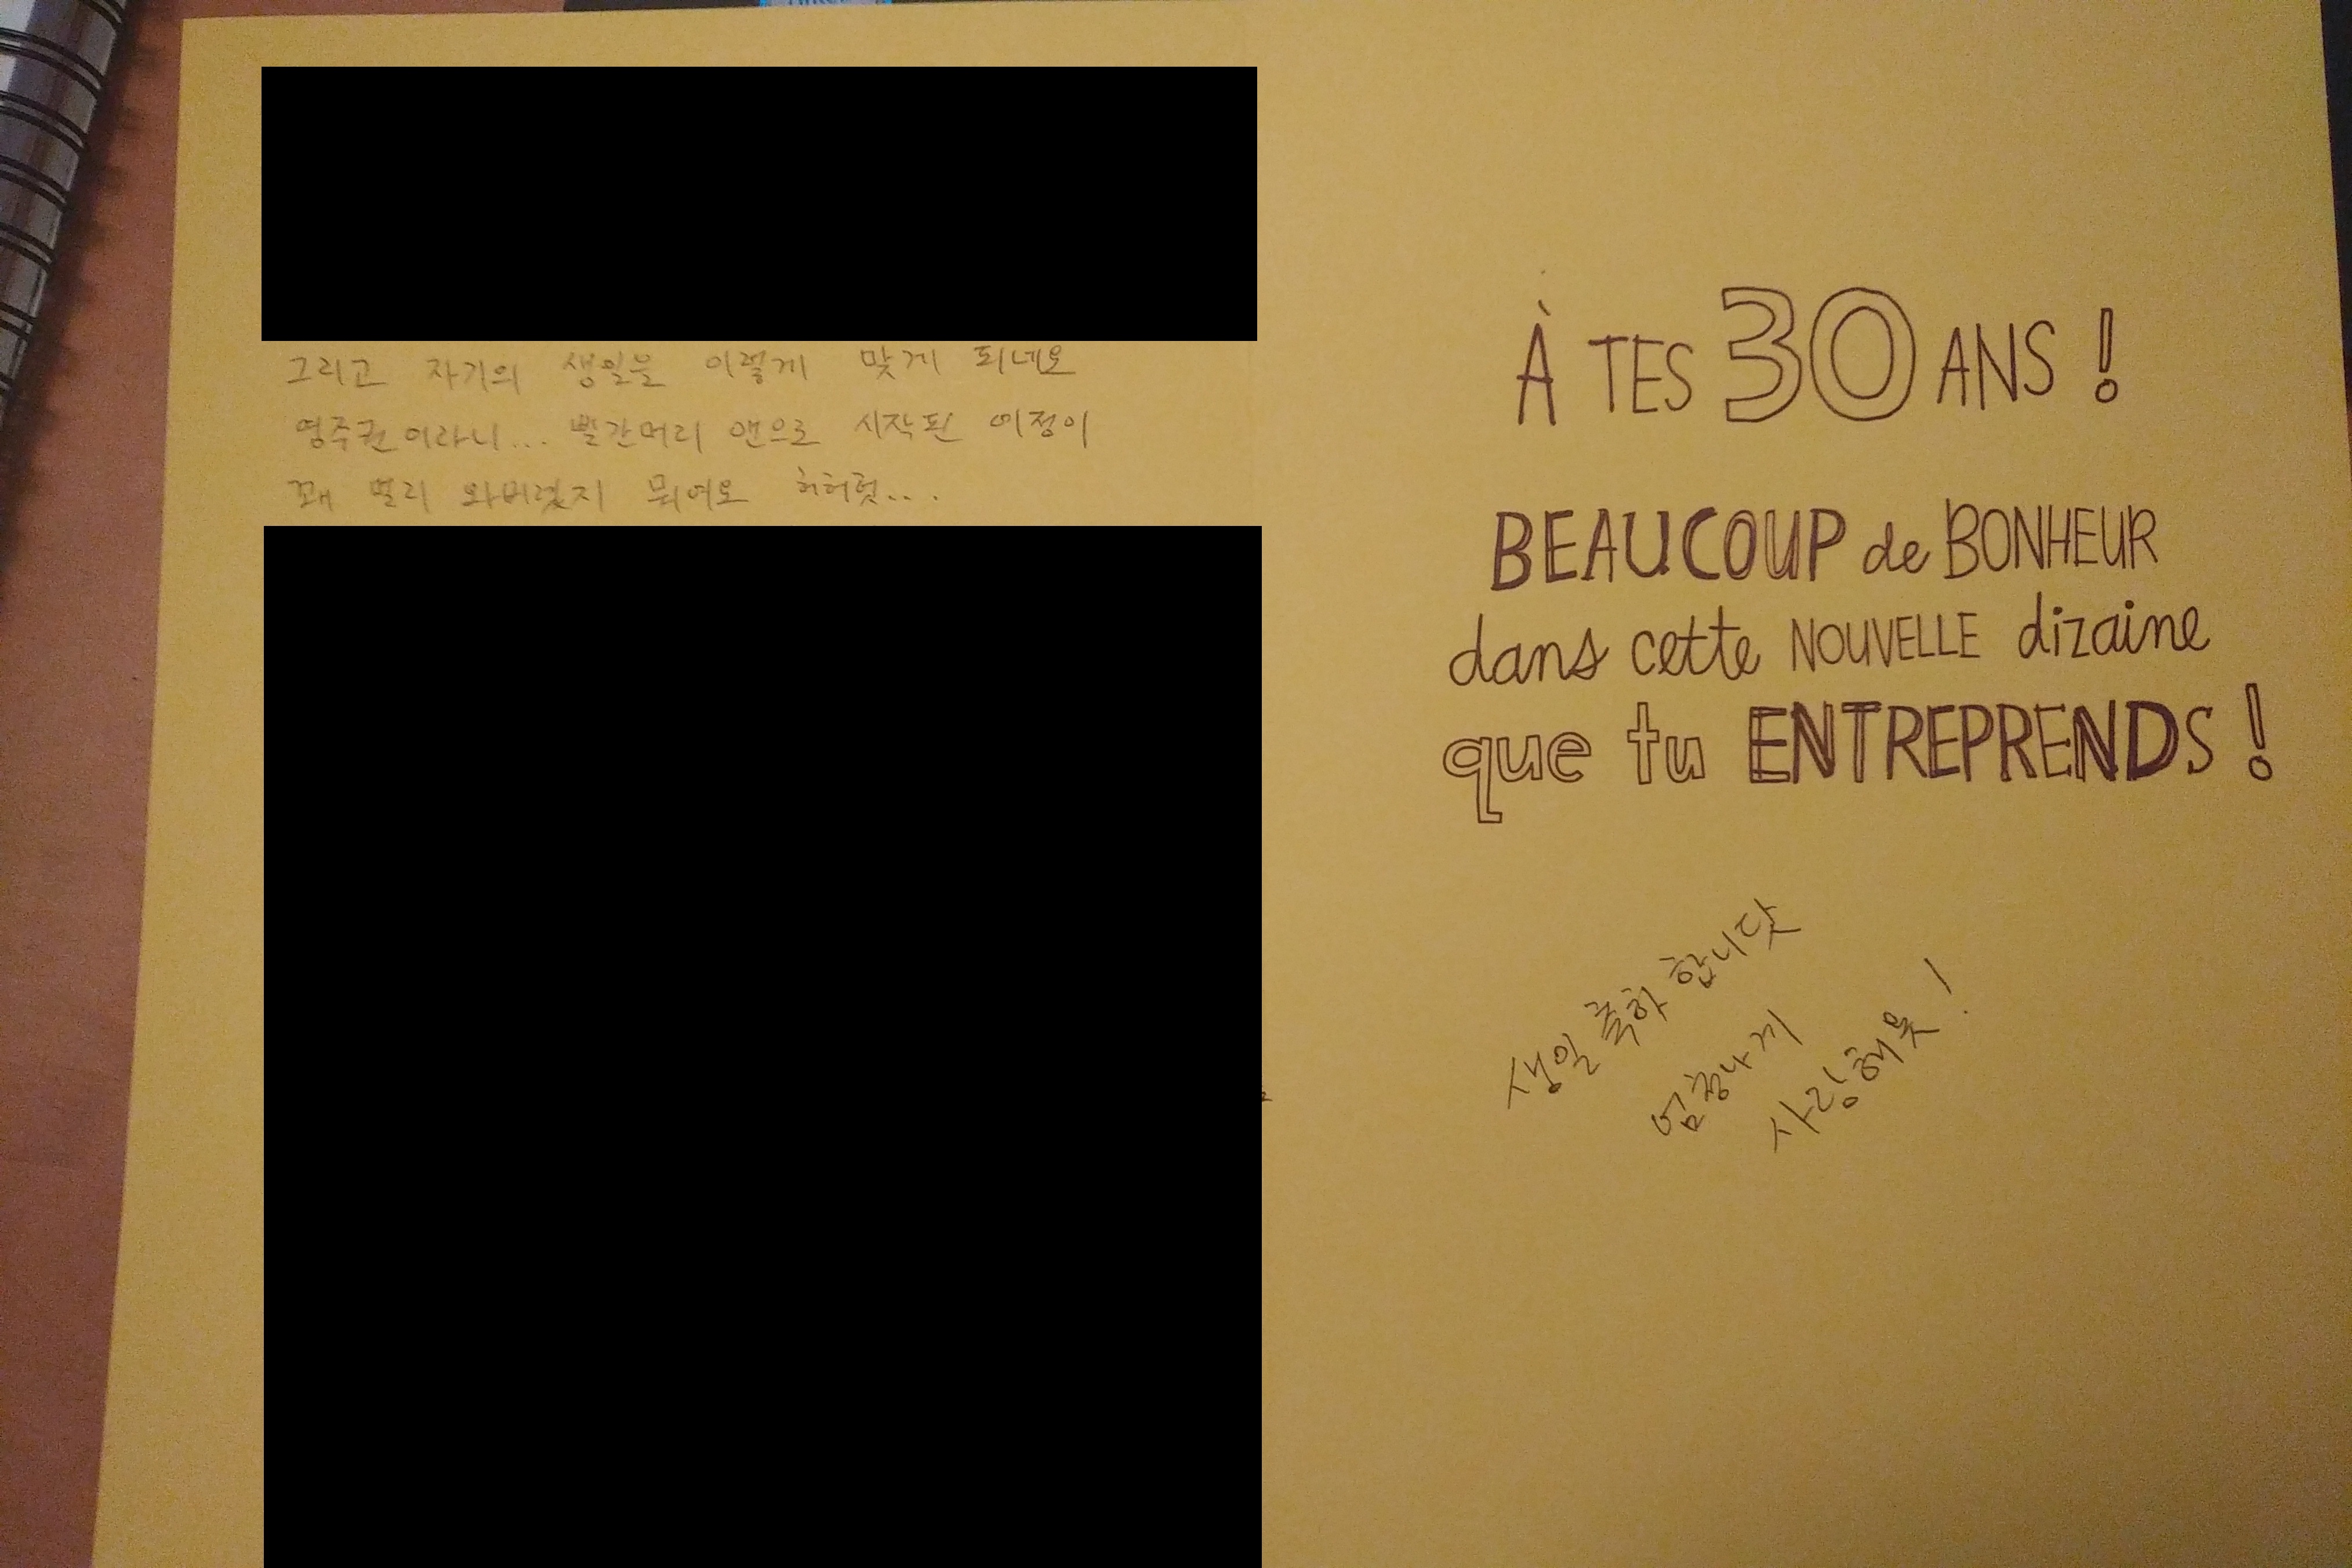 그리고 자기의 생일을 이렇게 맞게 되네요
영주권이라니... 빨간머리 앤으로 시작된 여정이
꽤 멀리 와버렸지 뭐에요 허허헛...
À TES 30 ANS !
BEAUCOUP de BONHEUR
dans cette NOUVELLE dizaine
que tu ENTREPRENDS !
생일 축하 합니닷
엄청나게
사랑해욧!